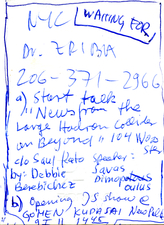 NYC WAITING FOR
Dr. ZRIBIA
206-371-2966
a) Start talk
"News from the
Large Hadron Collider
an Beyond" 104 Wood
c/o Saul Rato speaker:
by: Debbie Savas
Berebichez Dimopoulos
b) Opening JS show @
GOMEN KUDASAI